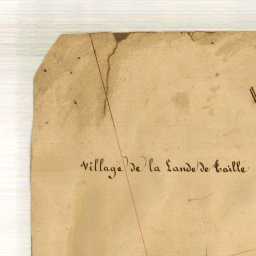 Village de la Lande de Taille